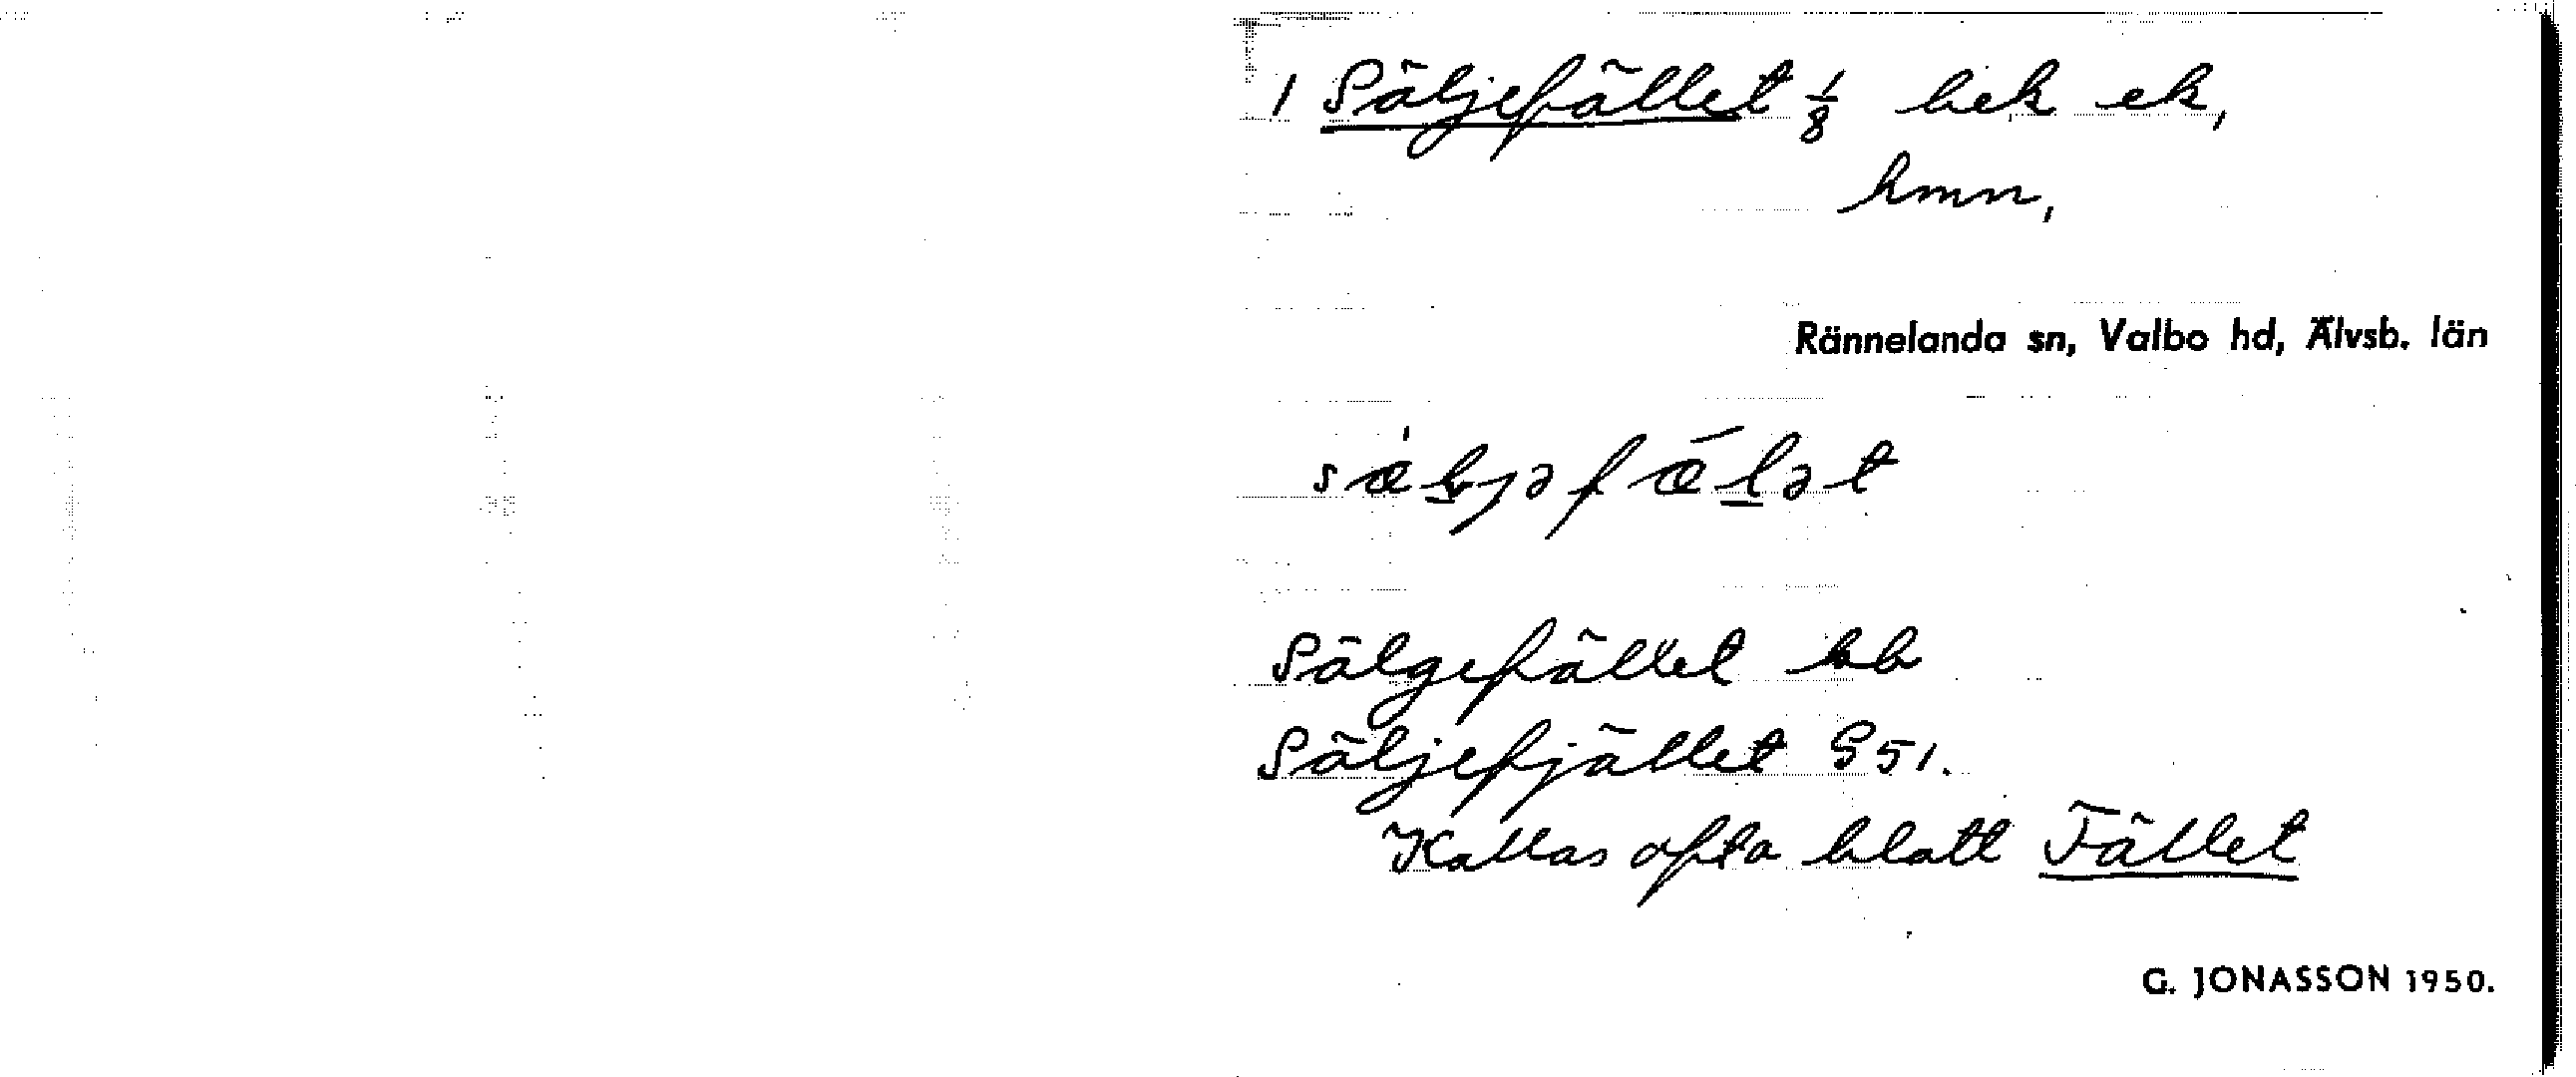 1 Säljefället 1/8 hek ek,
hmn,
Rännelanda sn, Valbo hd, Älvsb. län
Sälgefället
Säljefjället S 51.
Kallas ofta blott Fället
G. JONASSON 1950.